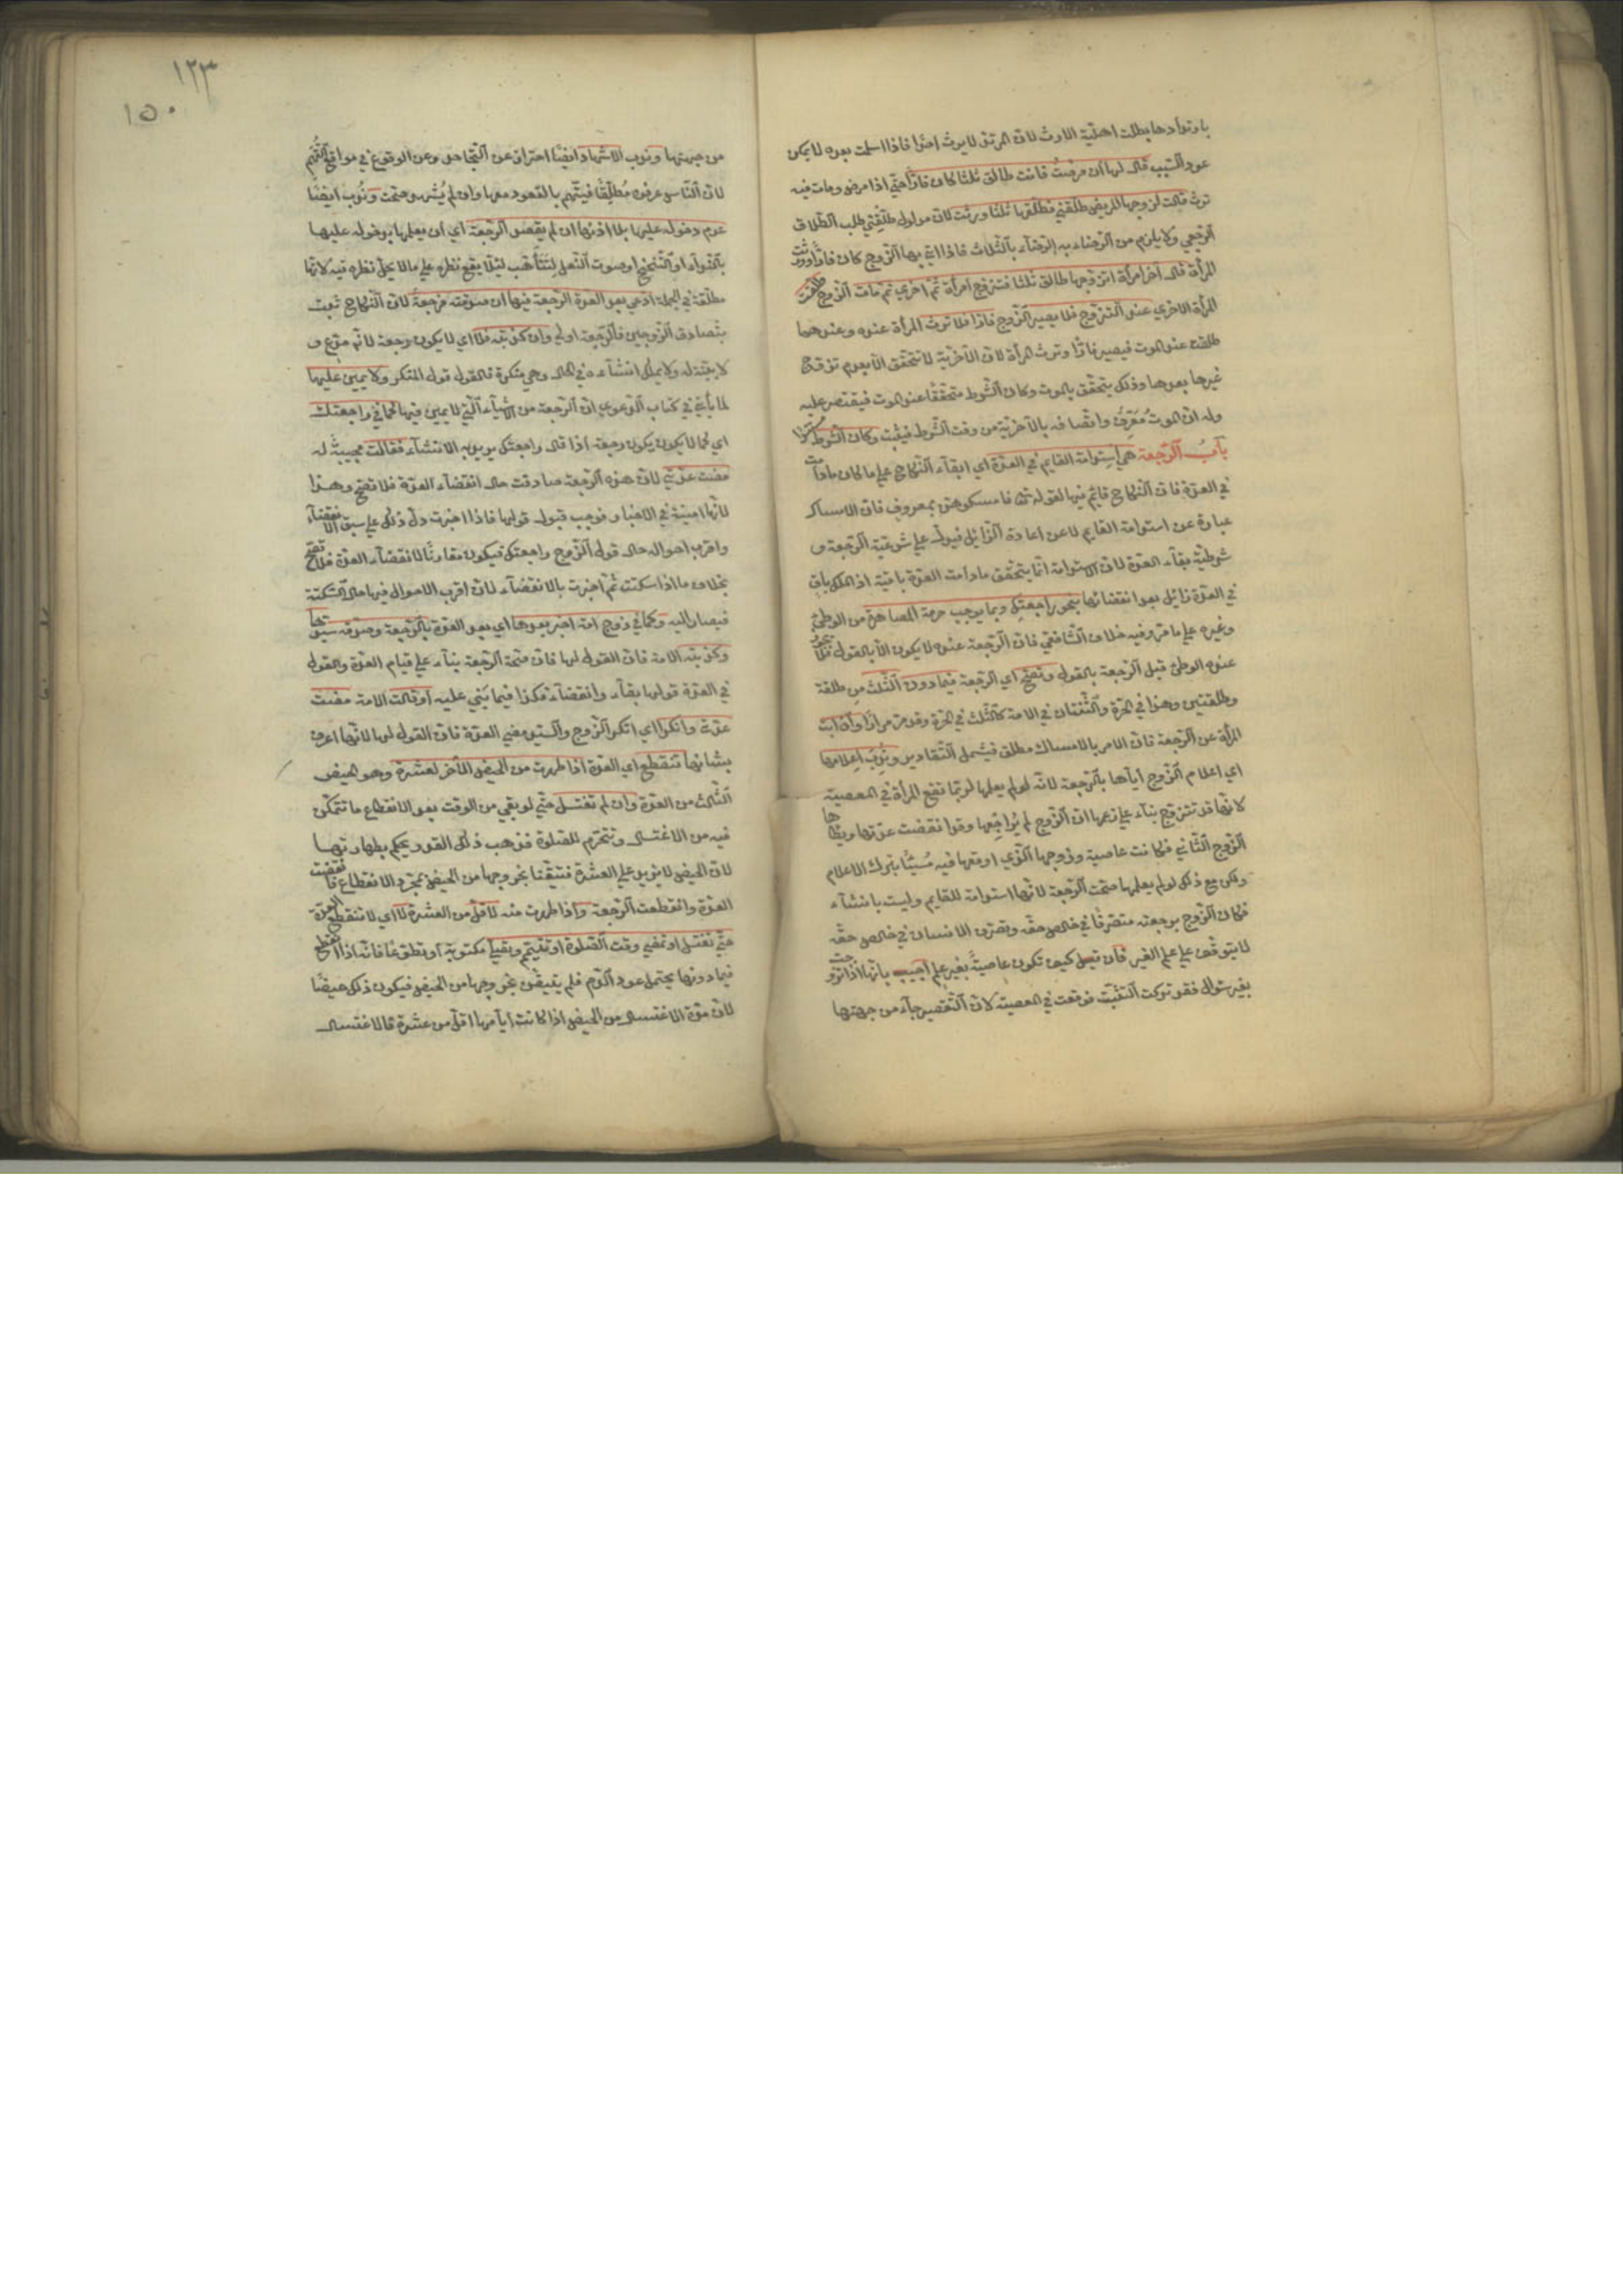 بارتدادها بطلت اهلية الارث لان المرتد لا يرث احدا فاذا اسلمت بعده لا يمكن
عود السبب قال لها ان مرضت فانت طالق ثلثا كان فارا حتى اذا مرض ومات فيه
ترث قالت لزوجها المريض طلقني فطلقها ثلثا ورثت لان مدلول طلقني طلب الطلاق
الرجعي ولا يلزم من الرضاء به الرضاء بالثلاث فاذا اتى بها الزوج كان فارا وورثت
المرأة قال آخر امرأة اتزوجها طالق ثلثا فتزوج امرأة ثم اخرى ثم مات الزوج طلقت
المرأة الاخرى عند التزوج فلا يصير الزوج فارا فلا ترث المرأة عنده وعندهما
طلقت عند الموت فيصير فارا وترث المرأة لان الآخرية لا تتحقق الا بعدم تزوج
غيرها بعدها وذلك يتحقق بالموت وكان الشرط متحققا عند الموت فيقتصر عليه
وله ان الموت معرف واتصافه بالآخرية من وقت الشرط فيثبت وكان الشرط
باب الرجعة هي استدامة القايم في العدة اي ابقاء النكاح على ما كان ما دامت
في العدة فان النكاح قايم فيها لقوله تعالى فامسكوهن بمعروف فان الامساك
عبارة عن استدامة القايم لا عن اعادة الزائل فيدل على شرعية الرجعة و
شرطية بقاء العدة لان الاستدامة انما يتحقق ما دامت العدة باقية اذ الملك باق
في العدة زائل بعد انقضائها بنحو راجعتك وبما يوجب حرمة المصاهرة من الوطئ
وغيره على ما مر وفيه خلاف الشافعي فان الرجعة عنده لا يكون الا بالقول فلا يجوز
عنده الوطئ قبل الرجعة بالقول وتصح اي الرجعة فيما دون الثلث من طلقة
وطلقتين وهذا في الحرة والثنتان في الامة كالثلث في الحرة وقد مر مرارا وان ابت
المرأة عن الرجعة فان الامر بالامساك مطلق فيشمل التقادير وندب اعلامها
اي اعلام الزوج اياها بالرجعة لانه لو لم يعلمها لربما تقع المرأة في المعصية
لانها قد تتزوج بناء على زعمها ان الزوج لم يراجعها وقد انقضت عدتها ويطأها
الزوج الثاني فكانت عاصية وزوجها الذي اوقعها فيه مسيئا بترك الاعلام
ولكن مع ذلك لو لم يعلمها صحت الرجعة لانها استدامة للقايم وليست بانشاء
فكان الزوج برجعته متصرفا في خالص حقه وتصرف الانسان في خالص حقه
لا يتوقف على علم الغير فان قيل كيف تكون عاصية بغير علم اجيب بانها اذا تزوجت
بغير سؤال فقد تركت التثبت فوقعت في المعصية لان التقصير جاء من جهتها
١٢٣
١٥٠
من جهتها وندب الاشهاد ايضا احترازا عن التجاحد وعن الوقوع في مواقع التهم
لان الناس عرفوه مطلقا فيتهم بالقعود معها وان لم يشهد صحت وندب ايضا
عدم دخوله عليها بلا اذنها ان لم يقصد الرجعة اي ان يعلمها بدخوله عليها
بالنداء او التنحنح او صوت النعل لتتأهب لئلا يقع نظره على ما لا يحل نظره فيه لانها
مطلقة في الجملة ادعى بعد العدة الرجعة فيها ان صدقته فرجعة لان النكاح ثبت
بتصادق الزوجين فالرجعة اولى وان كذبته فلا اي لا يكون رجعة لانه مدع و
لا بينة له ولا يملك انشاءه في الحال وهي منكرة فالقول قول المنكر ولا يمين عليها
لما يأتي في كتاب الدعوى ان الرجعة من الاشياء التي لا يمين فيها كما في راجعتك
اي كما لا يكون يكون رجعة اذا قال راجعتك يريد به الانشاء فقالت مجيبة له
مضت عدتي لان هذه الرجعة صادفت حال انقضاء العدة فلا تصح وهذا
لانها امينة في الاخبار فوجب قبول قولها فاذا اخبرت دل ذلك على سبق الانقضاء
واقرب احواله حال قول الزوج راجعتك فيكون مقارنا لانقضاء العدة فلا تصح
بخلاف ما اذا سكتت ثم اخبرت بالانقضاء لان اقرب الاحوال فيها حال السكتة
فيصار اليه وكما في زوج امة اخبر بعدها اي بعد العدة بالرجعة وصدقه سيدها
وكذبته الامة فان القول لها فان صحة الرجعة بناء على قيام العدة والقول
في العدة قولها بقاء وانقضاء فكذا فيما بني عليه او قالت الامة مضت
عدتي وانكرا اي انكر الزوج والسيد مضي العدة فان القول لها لانها اعرف
بشانها تنقطع اي العدة اذا طهرت من الحيض الآخر لعشرة وهو الحيض
الثالث من العدة وان لم تغتسل حتى لو بقي من الوقت بعد الانقطاع ما تتمكن
فيه من الاغتسال وتتحرم للصلوة فذهب ذلك القدر ويحكم بطهارتها
لان الحيض لا يزيد على العشرة فتيقنا بخروجها من الحيض بمجرد الانقطاع فانقضت
العدة وانقطعت الرجعة واذا طهرت منه لاقل من العشرة لا اي لا تنقطع العدة
حتى تغتسل او تمضي وقت الصلوة او تتيمم وتصلي مكتوبة او تطوعا فانه اذا انقطع
فيما دونها يحتمل عود الدم فلم يتيقن بخروجها من الحيض فيكون ذلك حيضا
لان مدة الاغتسال من الحيض اذا كانت ايامها اقل من عشرة فالاغتسال